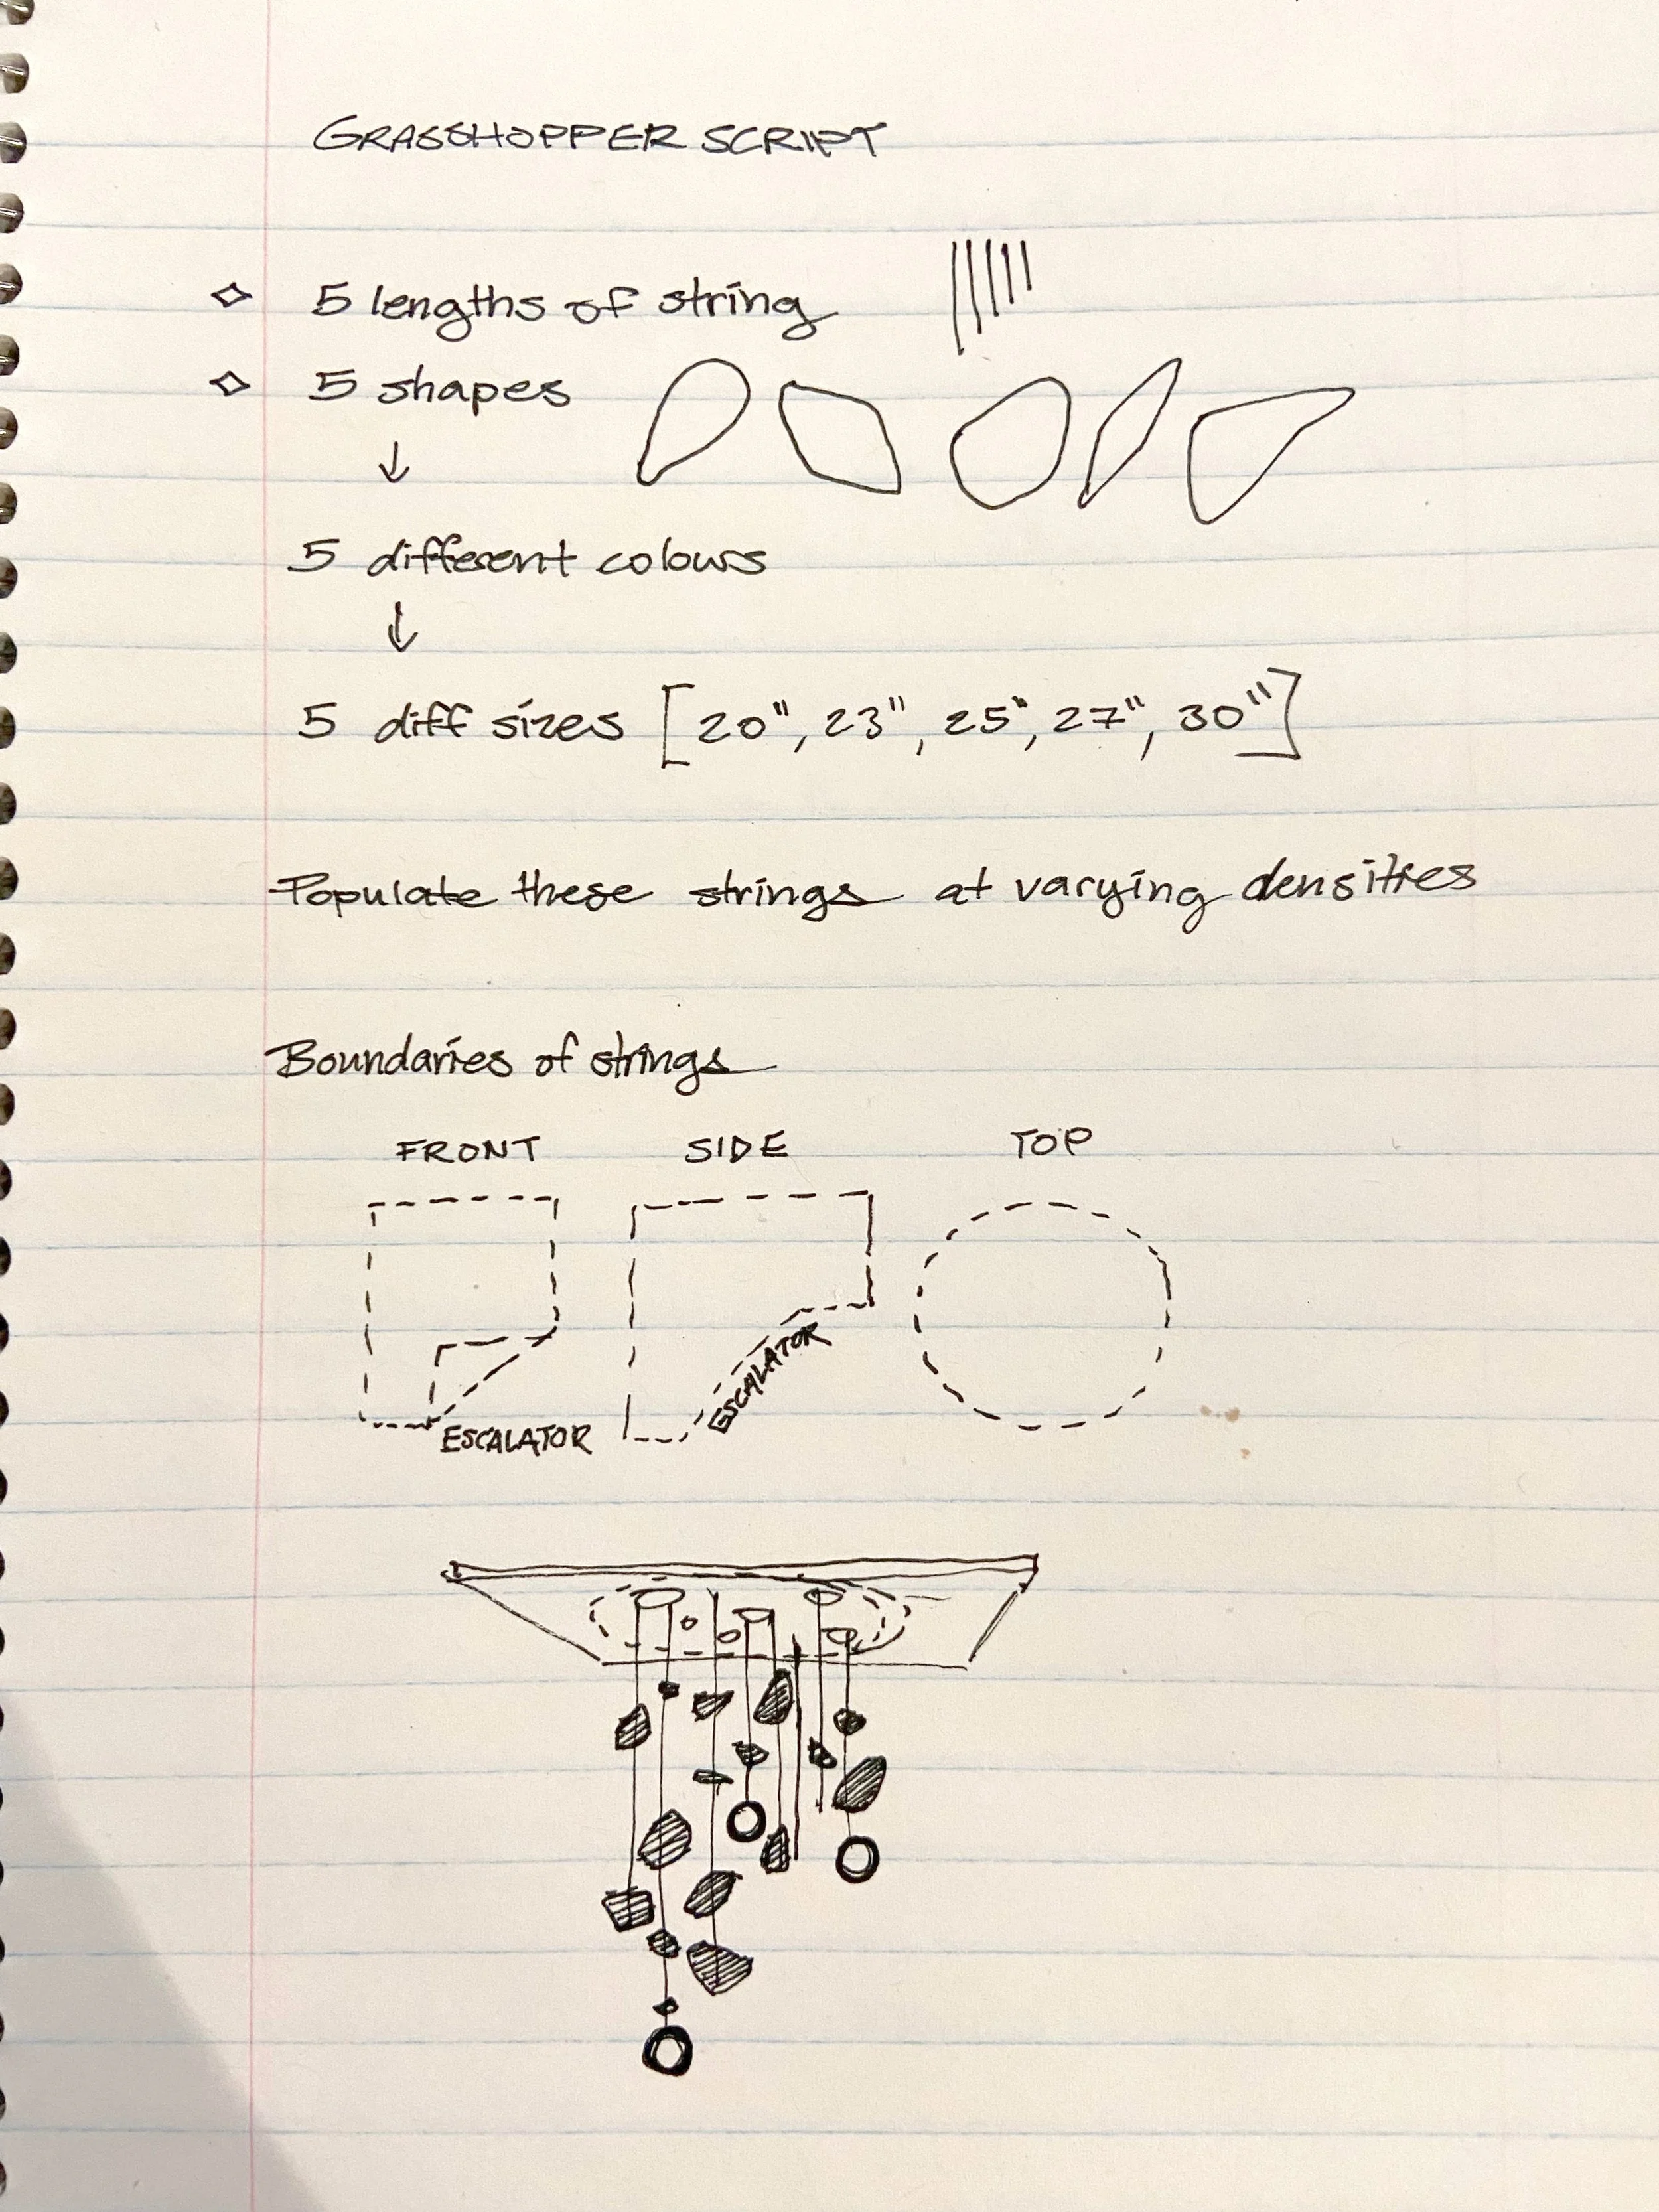 GRASSHOPPER SCRIPT
5 lengths of string
5 shapes
↓
5 different colours
↓
5 diff sizes [20", 23", 25", 27", 30"]
Populate these strings at varying densities
Boundaries of strings
FRONT SIDE TOP
ESCALATOR
ESCALATOR